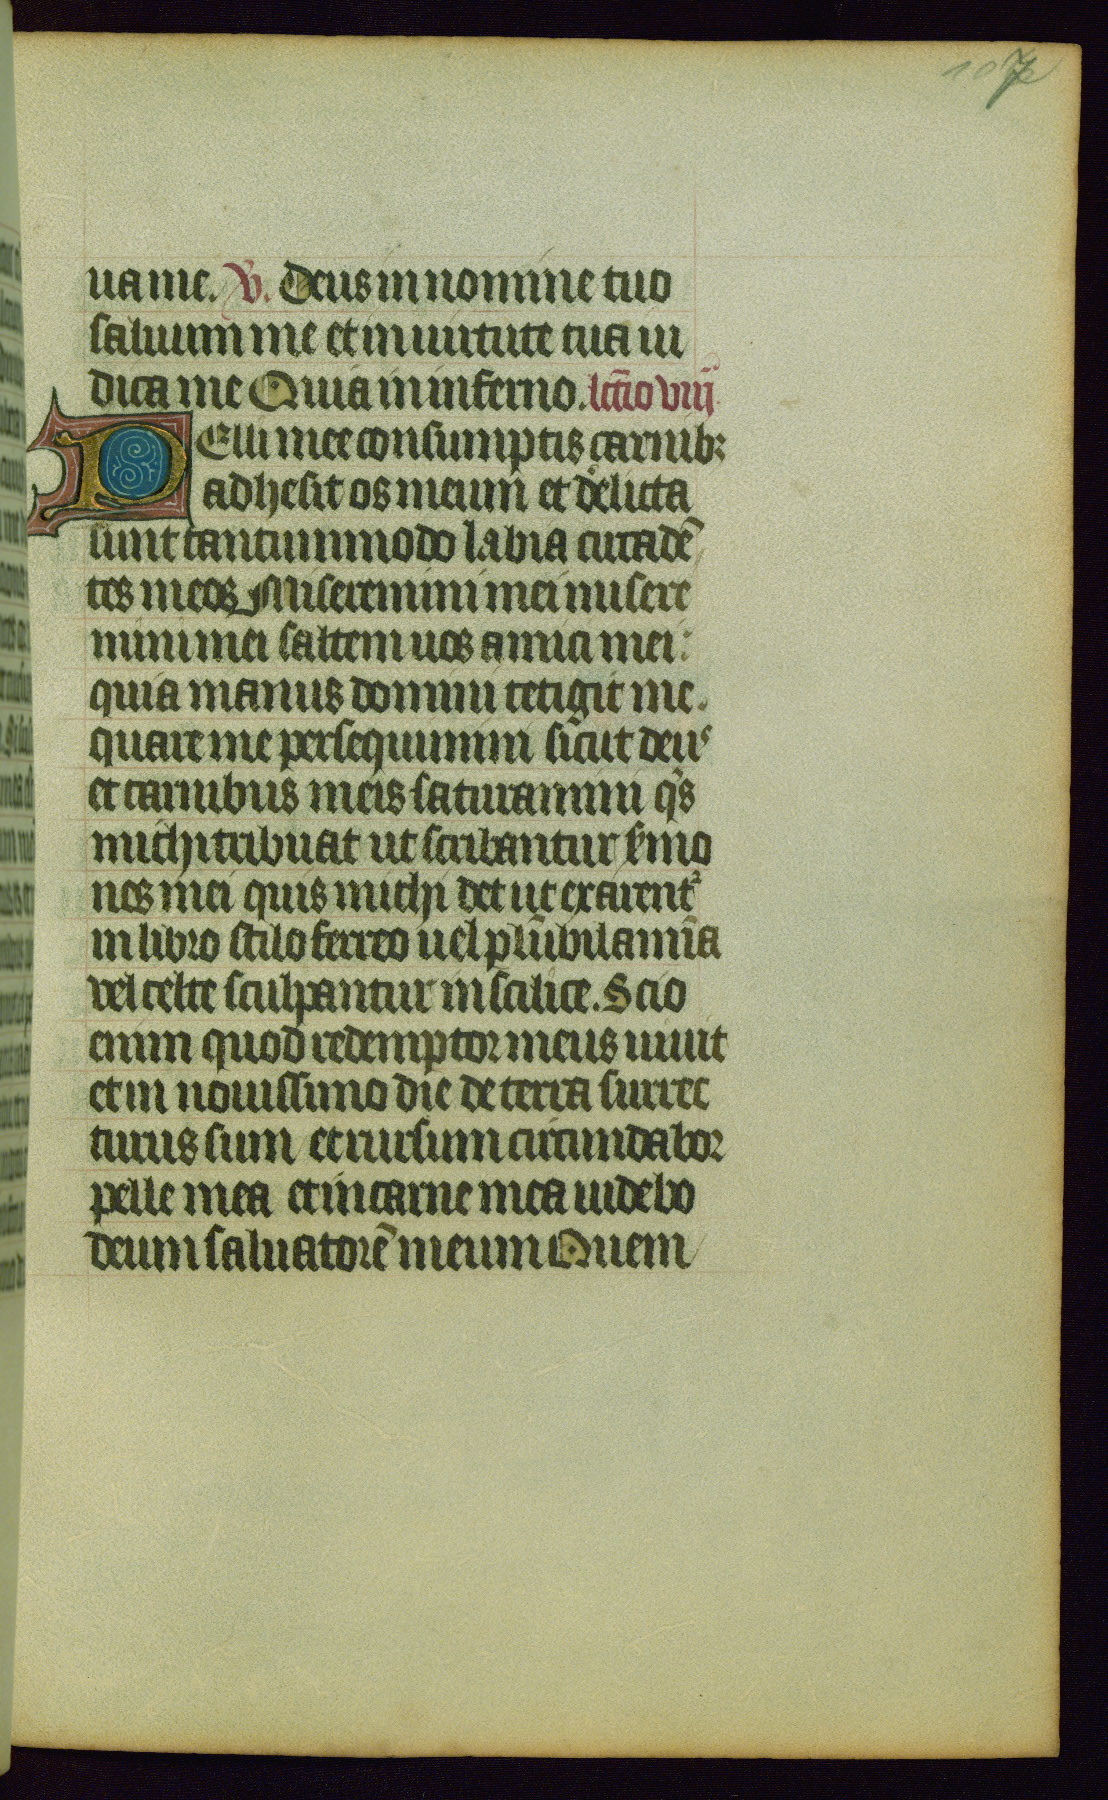 107
ua me. V. Deus in nomine tuo
saluum me et in uirtute tua iu
dica me Quia in inferno. lctīo viij
PElli mee consumptis carnibꝫ
adhesit os meum et delicta
sunt tantummodo labia circa dē
tes meos Miseremini mei misere
mini mei saltem uos amici mei:
quia manus domini tetigit me.
quare me persequimini sicut deus
et carnibus meis saturamini q̄s
michi tribuat ut scribantur s̄mo
nes mei quis michi det ut exarent᷑
in libro stilo ferreo uel plūbi lamīa
vel celte sculpantur in scilice. Scio
enim quod redemptor meus uiuit
et in nouissimo die de terra surrec
turus sum et rursum circundabor
pelle mea et in carne mea uidebo
deum saluatorē meum Quem